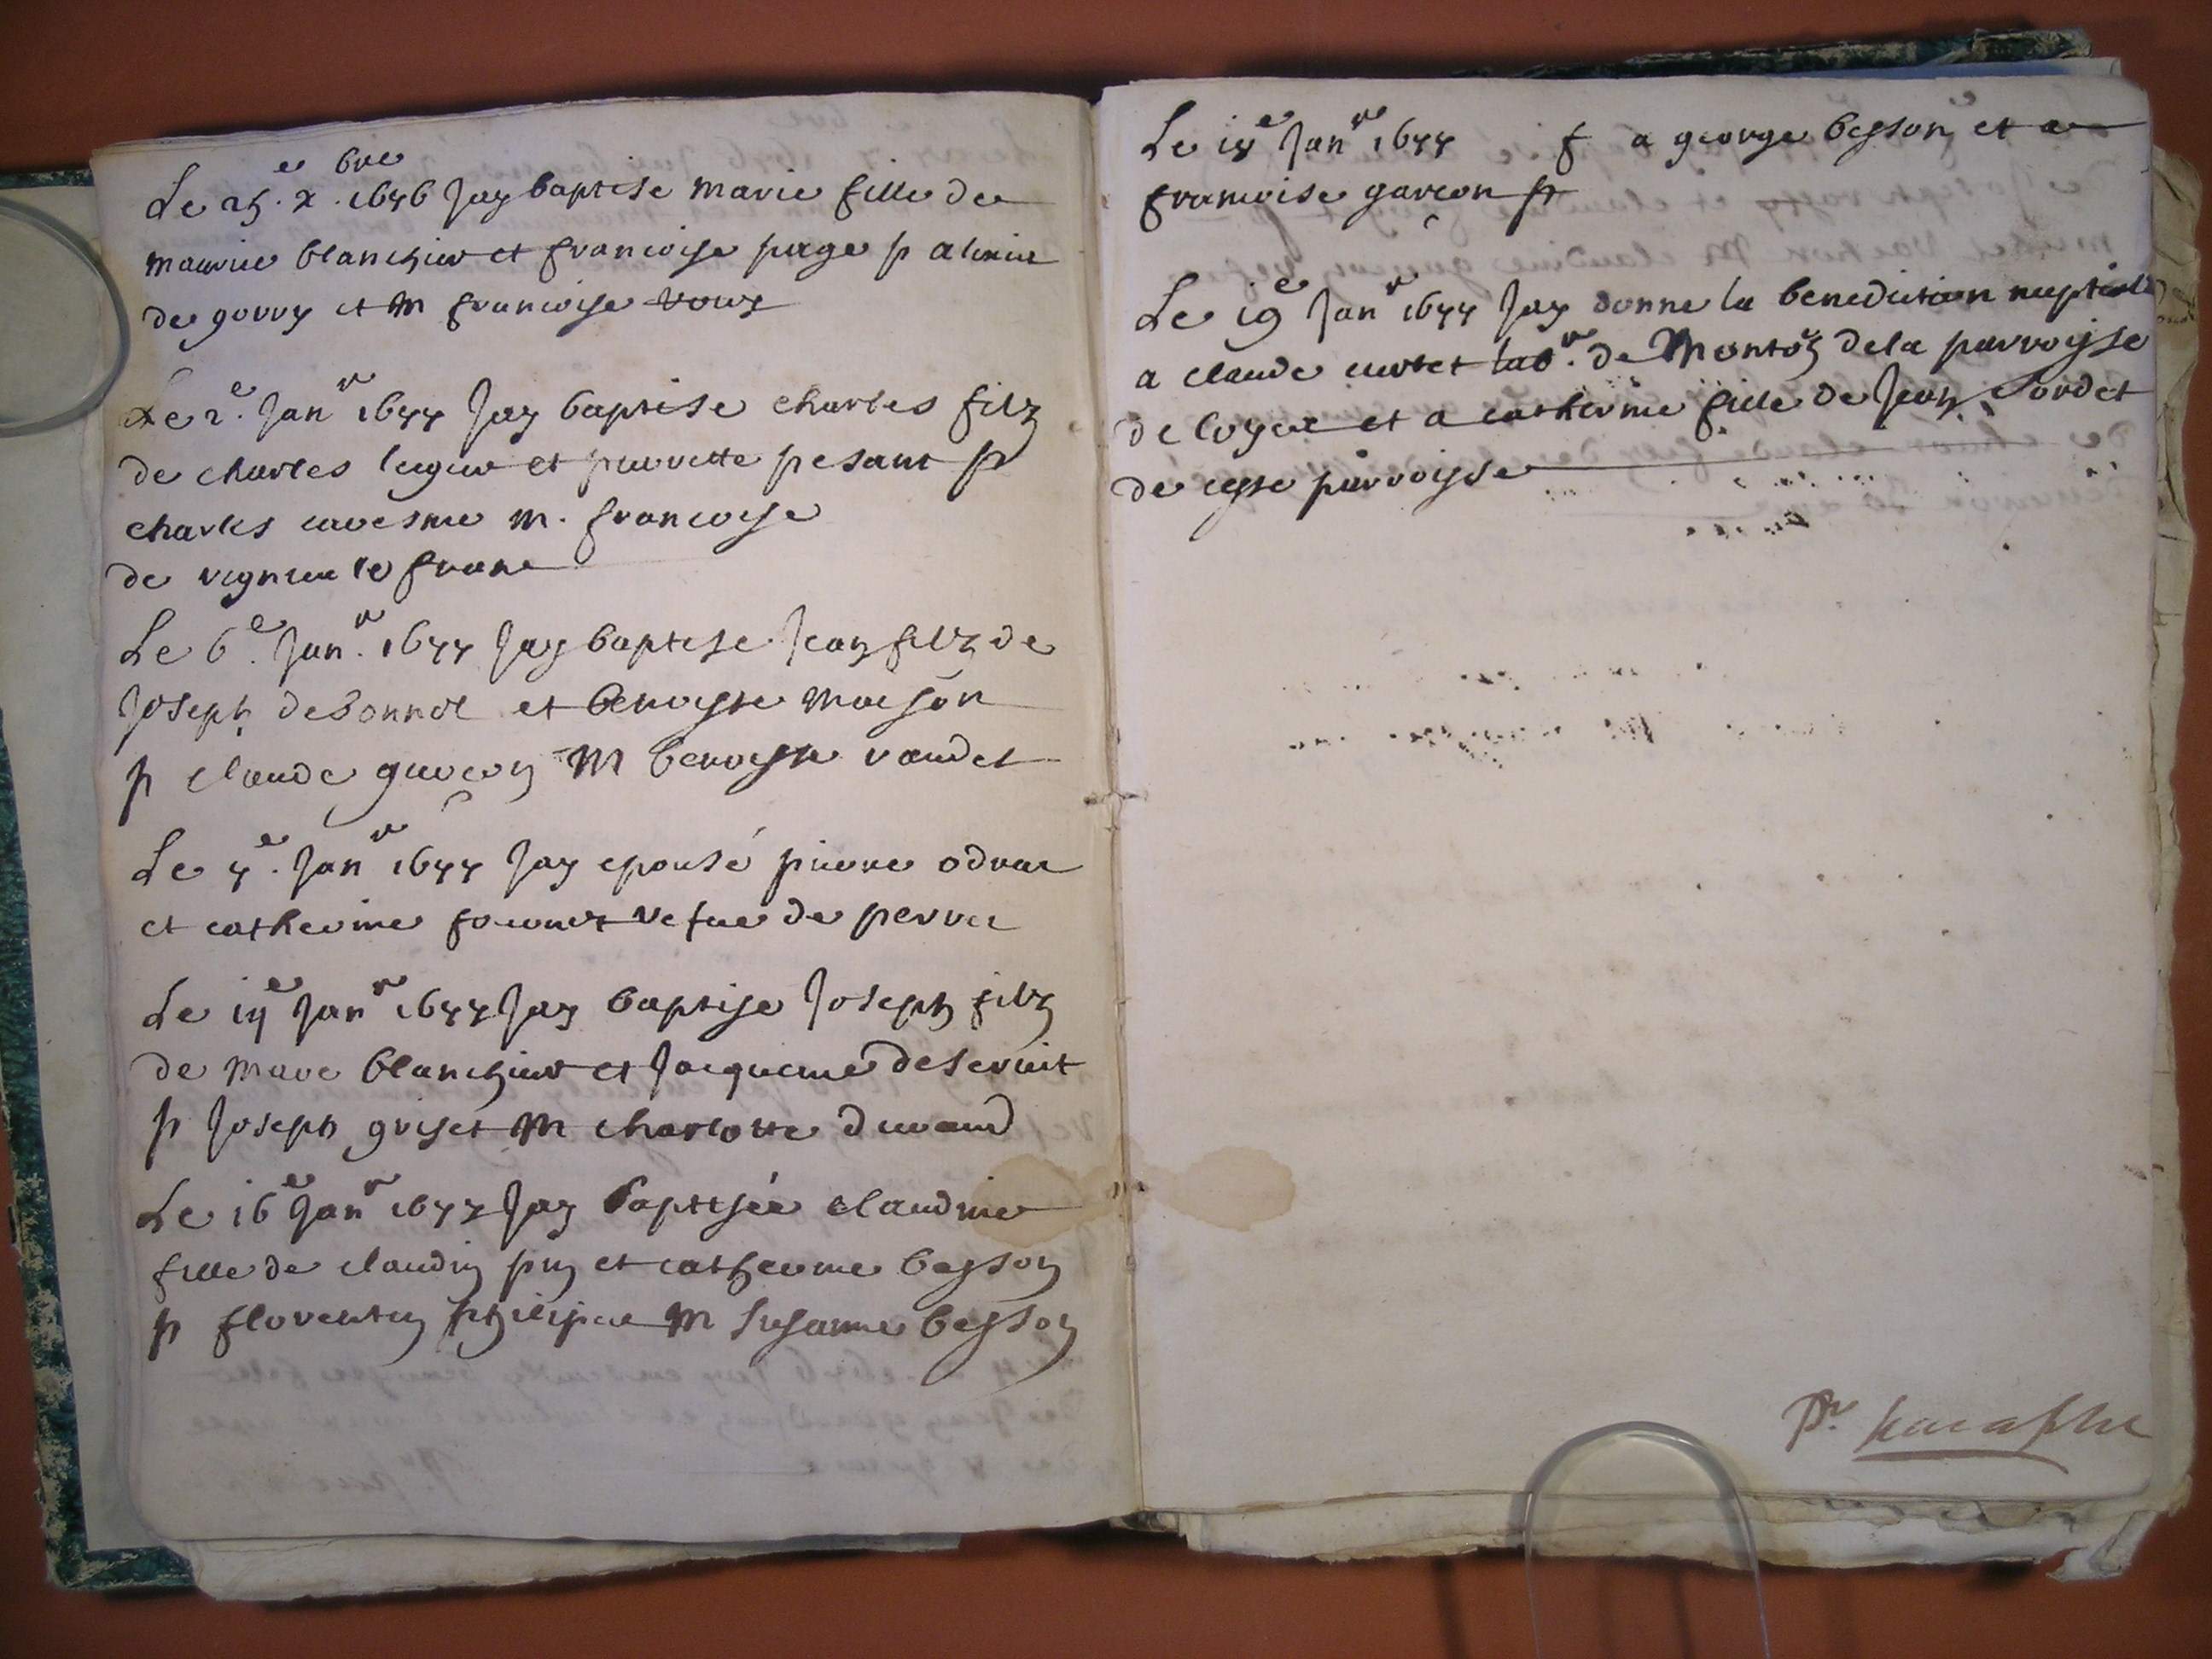 Le 25.e x.bre 1676 Jay baptise marie fille de
maurice blanchier et francoise page p
de gorry et M francoise
Le 2.e Janr 1677 Jay baptise charles filz
de charles leger et pierrette pesant p
charles m. francoise
de le franc
Le 6.e Janr. 1677 Jay baptise Jean filz de
Joseph debonnot et benoiste maison
p claude garcon M benoiste vaudet
Le 7.e Janr 1677 Jay epousé pierre
et catherine vefue de perret
Le Janr 1677 Jay baptise Joseph filz
de marc blanchier et Jacqueme
p Joseph griset M charlotte durand
Le 16e Janr 1677 Jay baptisée claudine
fille de claudin pin et catherine besson
p florentin philipe M susanne besson
Le 18e Janr 1677 f a george besson et a
francoise garçon p
Le 19e Janr 1677 Jay donne la benediction nuptiale
a claude curtet labr. de de la parroisse
de loyse et a catherine fille de Jean sordet
de ceste parroisse
Pr. paraphe